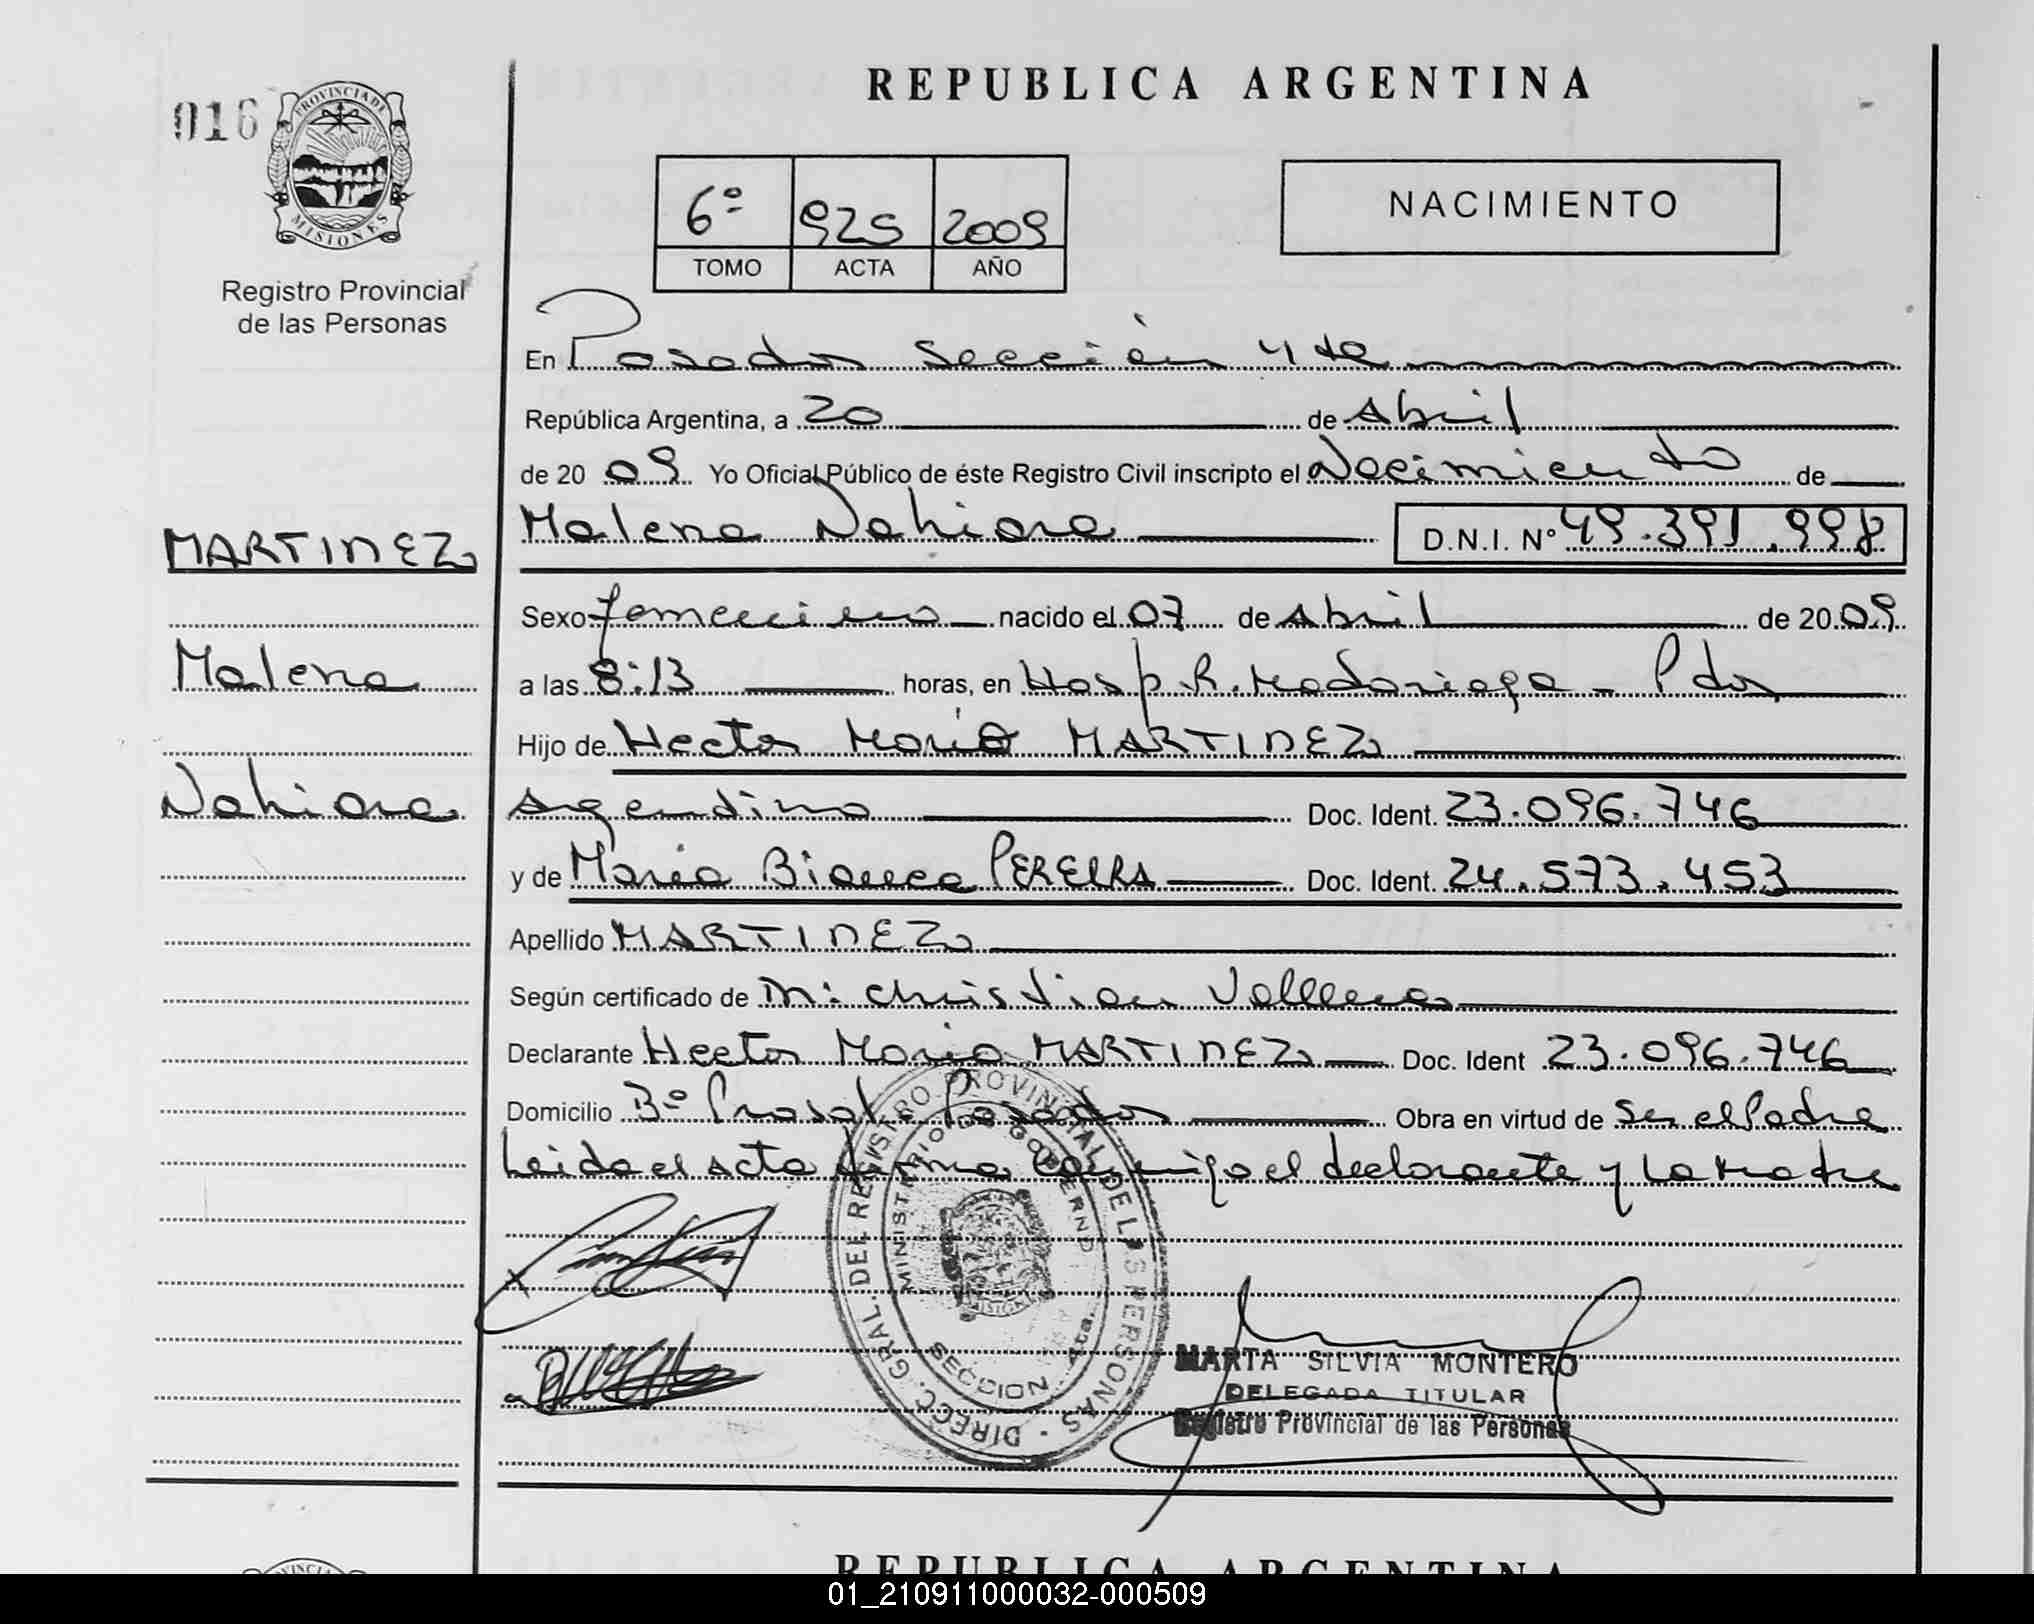 016
PROVINCIA DE
MISIONES
Registro Provincial
de las Personas
REPUBLICA ARGENTINA
6º 925 2009
TOMO ACTA AÑO
NACIMIENTO
En Posadas Sección 4ta
República Argentina, a 20 de Abril
de 2009 Yo Oficial Público de éste Registro Civil inscripto el Nacimiento de
MARTINEZ
Malena
Nahiara
Malena Nahiara D.N.I. Nº 49.391.998
Sexo femenino nacido el 07 de Abril de 2009
a las 8:13 horas, en Hosp. R. Madariaga - Pdas
Hijo de Hector Mario MARTINEZ
Argentino Doc. Ident. 23.096.746
y de Maria Bianca PEREIRA Doc. Ident. 24.573.453
Apellido MARTINEZ
Según certificado de M: Christian
Declarante Hector Mario MARTINEZ Doc. Ident 23.096.746
Domicilio Bº Posadas Obra en virtud de Ser el Padre
Leida el acta firma conmigo el declarante y La Madre
DIRECC. GRAL. DEL REGISTRO PROVINCIAL DE LAS PERSONAS
MINISTERIO DE GOBIERNO
SECCION 4ta.
MARTA SILVIA MONTERO
DELEGADA TITULAR
Registro Provincial de las Personas
REPUBLICA ARGENTINA
01_210911000032-000509